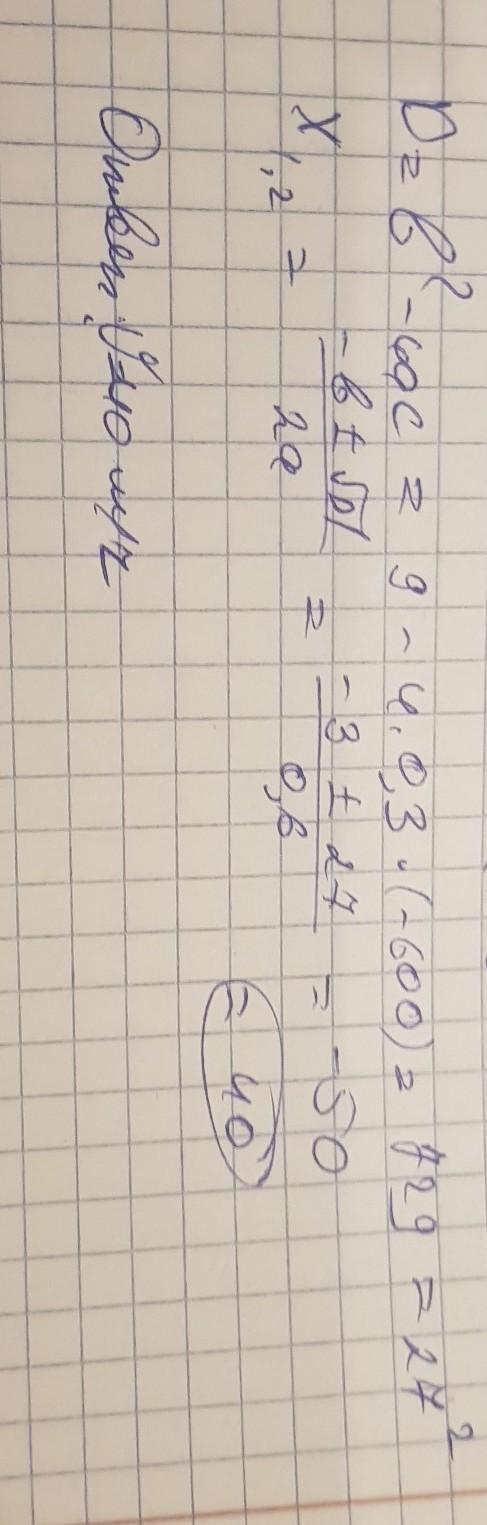 D = b² - 4ac = 9 - 4.0,3 · (-600) = 729 = 27²
X₁,₂ = (-b ± √D)/2a = (-3 ± 27)/0,6 = -50
= 40
Ответ: 40 м/ч